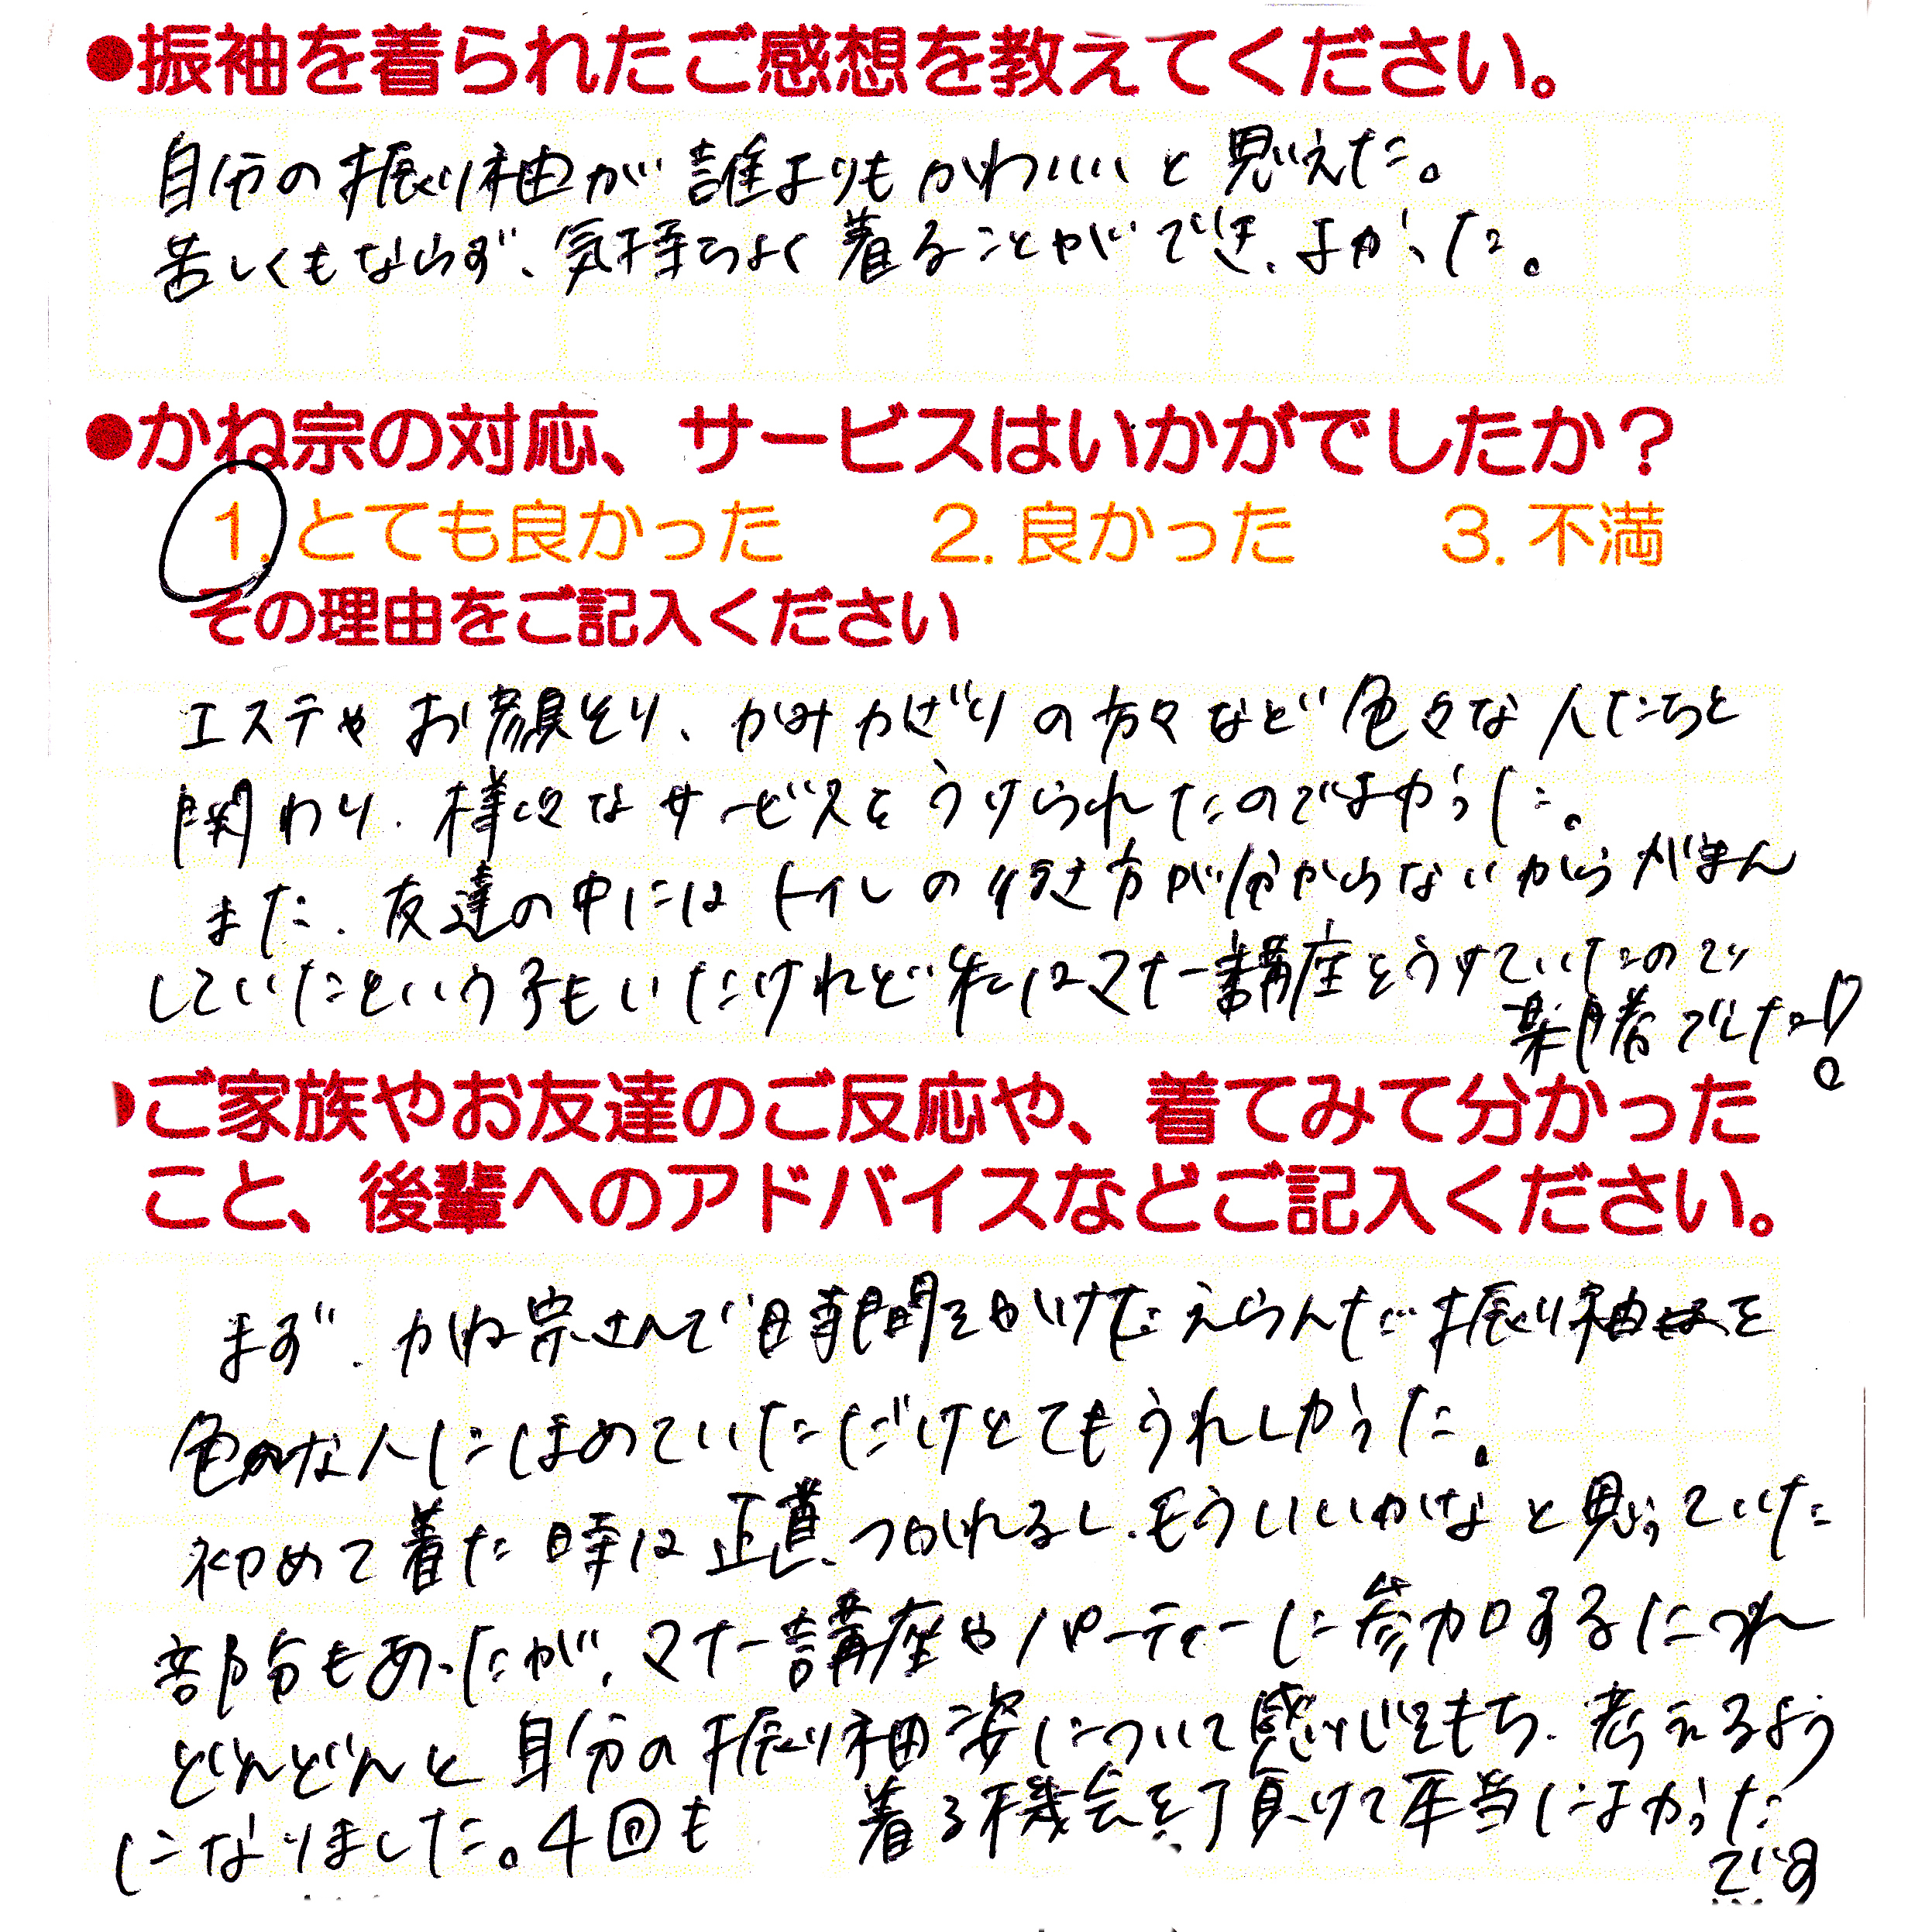 ●振袖を着られたご感想を教えてください。
自分の振り袖が誰よりもかわいいと思えた。
苦しくもならず、気持ちよく着ることができ、よかった。
●かね宗の対応、サービスはいかがでしたか？
1.とても良かった 2.良かった 3.不満
その理由をご記入ください
エステやお顔そり、かみかざりの方々など色々な人たちと
関わり、様々なサービスをうけられたのでよかった。
また、友達の中にはトイレの使い方が分からないからがまん
していたという子もいたけれど私はマナー講座をうけていたので
楽勝でした!
●ご家族やお友達のご反応や、着てみて分かった
こと、後輩へのアドバイスなどご記入ください。
まず、かね宗さんで時間をかけたえらんだ振り袖を
色々な人にほめていただけとてもうれしかった。
初めて着た時は正直、つかれるし、もういいかなと思っていた
部分もあったが、マナー講座やパーティーに参加するにつれ
どんどんと自分の振り袖姿について感じをもち、考えるよう
になりました。4回も 着る機会を頂けて本当によかった
です